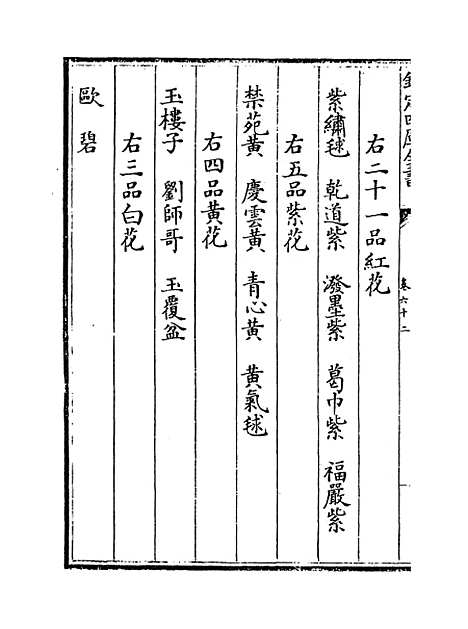 欽定四庫全書
卷六十二
右二十一品紅花
紫繡毬 乾道紫 潑墨紫 葛巾紫 福嚴紫
右五品紫花
禁苑黄 慶雲黄 青心黄 黄氣毬
右四品黄花
玉樓子 劉師哥 玉覆盆
右三品白花
歐碧